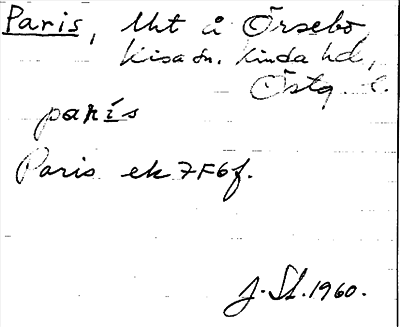 Paris, lht å Örsebo,
Kisa sn. Kinda hd,
Östg. l.
parís
Paris ek 7F6f.
J. St. 1960.